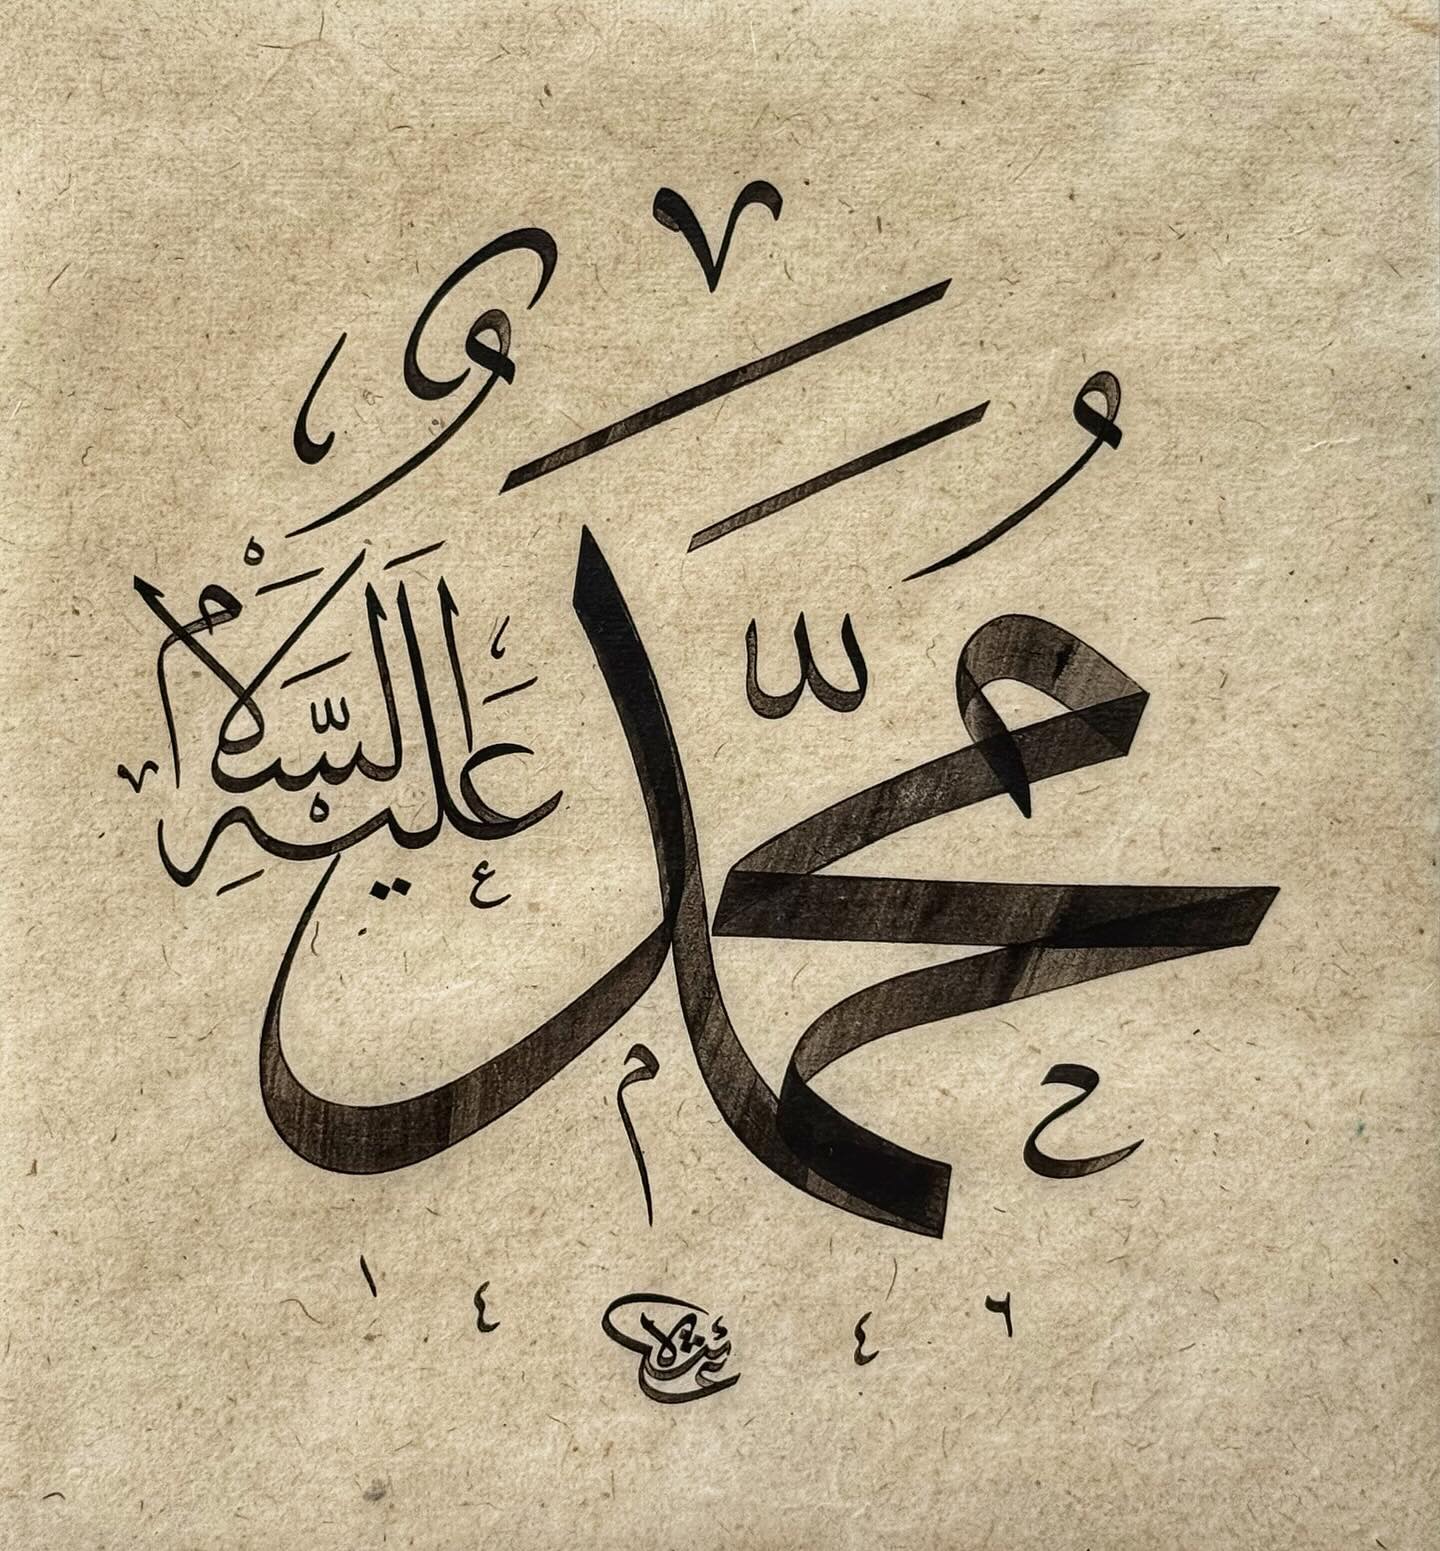 مُحَمَّدٌ
عَلَيْهِ السَّلَامُ
١٤٤٦